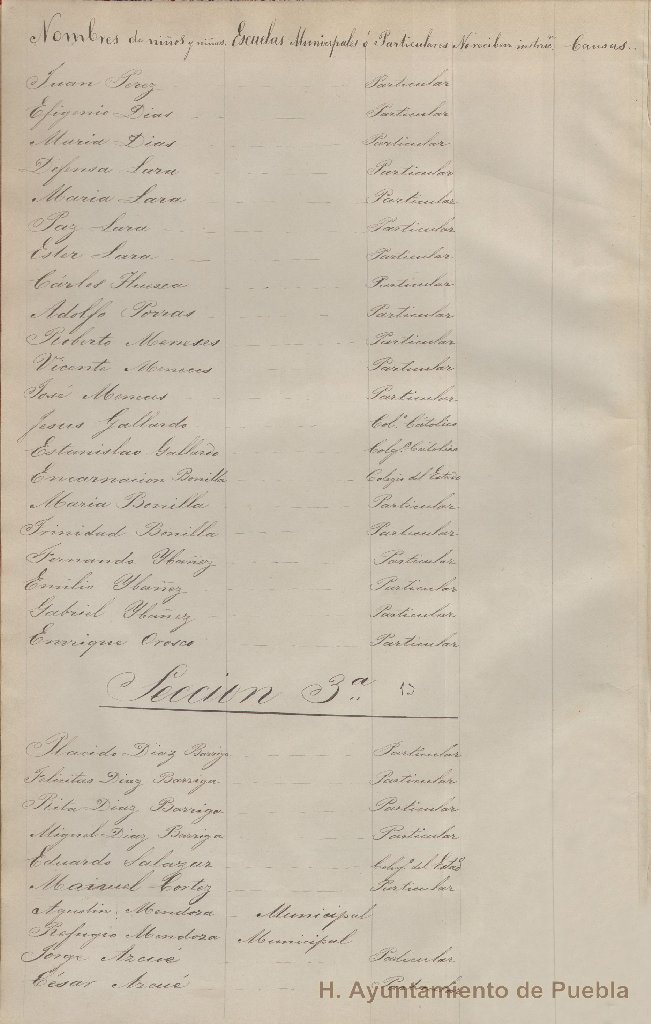 Nombres de niños y niñas. Escuelas Municipales ó Particulares No reciben instrn. Causas.
Juan Perez Particular
Efigenio Dias Particular
Maria Dias Particular
Defensa Lara Particular
Maria Lara Particular
Paz Lara Particular
Ester Lara Particular
Cárlos Particular
Adolfo Porras Particular
Roberto Meneses Particular
Vicente Meneses Particular
José Meneses Particular
Jesus Gallardo Col.o Católico
Estanislao Gallardo Colg.o Católico
Encarnacion Bonilla Colegio del Estado
Maria Bonilla Particular
Trinidad Bonilla Particular
Fernando Ybañez Particular
Emilio Ybañez Particular
Gabriel Ybañez Particular
Enrique Orosco Particular
Seccion 3a.
Placido Diaz Barriga Particular
Felicitas Diaz Barriga Particular
Rita Diaz Barriga Particular
Miguel Diaz Barriga Particular
Eduardo Salazar Colg.o del Estado
Manuel Cortez Particular
Agustin Mendoza Municipal
Refugio Mendoza Municipal
Jorge Azcué Particular
César Azcué Particular
H. Ayuntamiento de Puebla